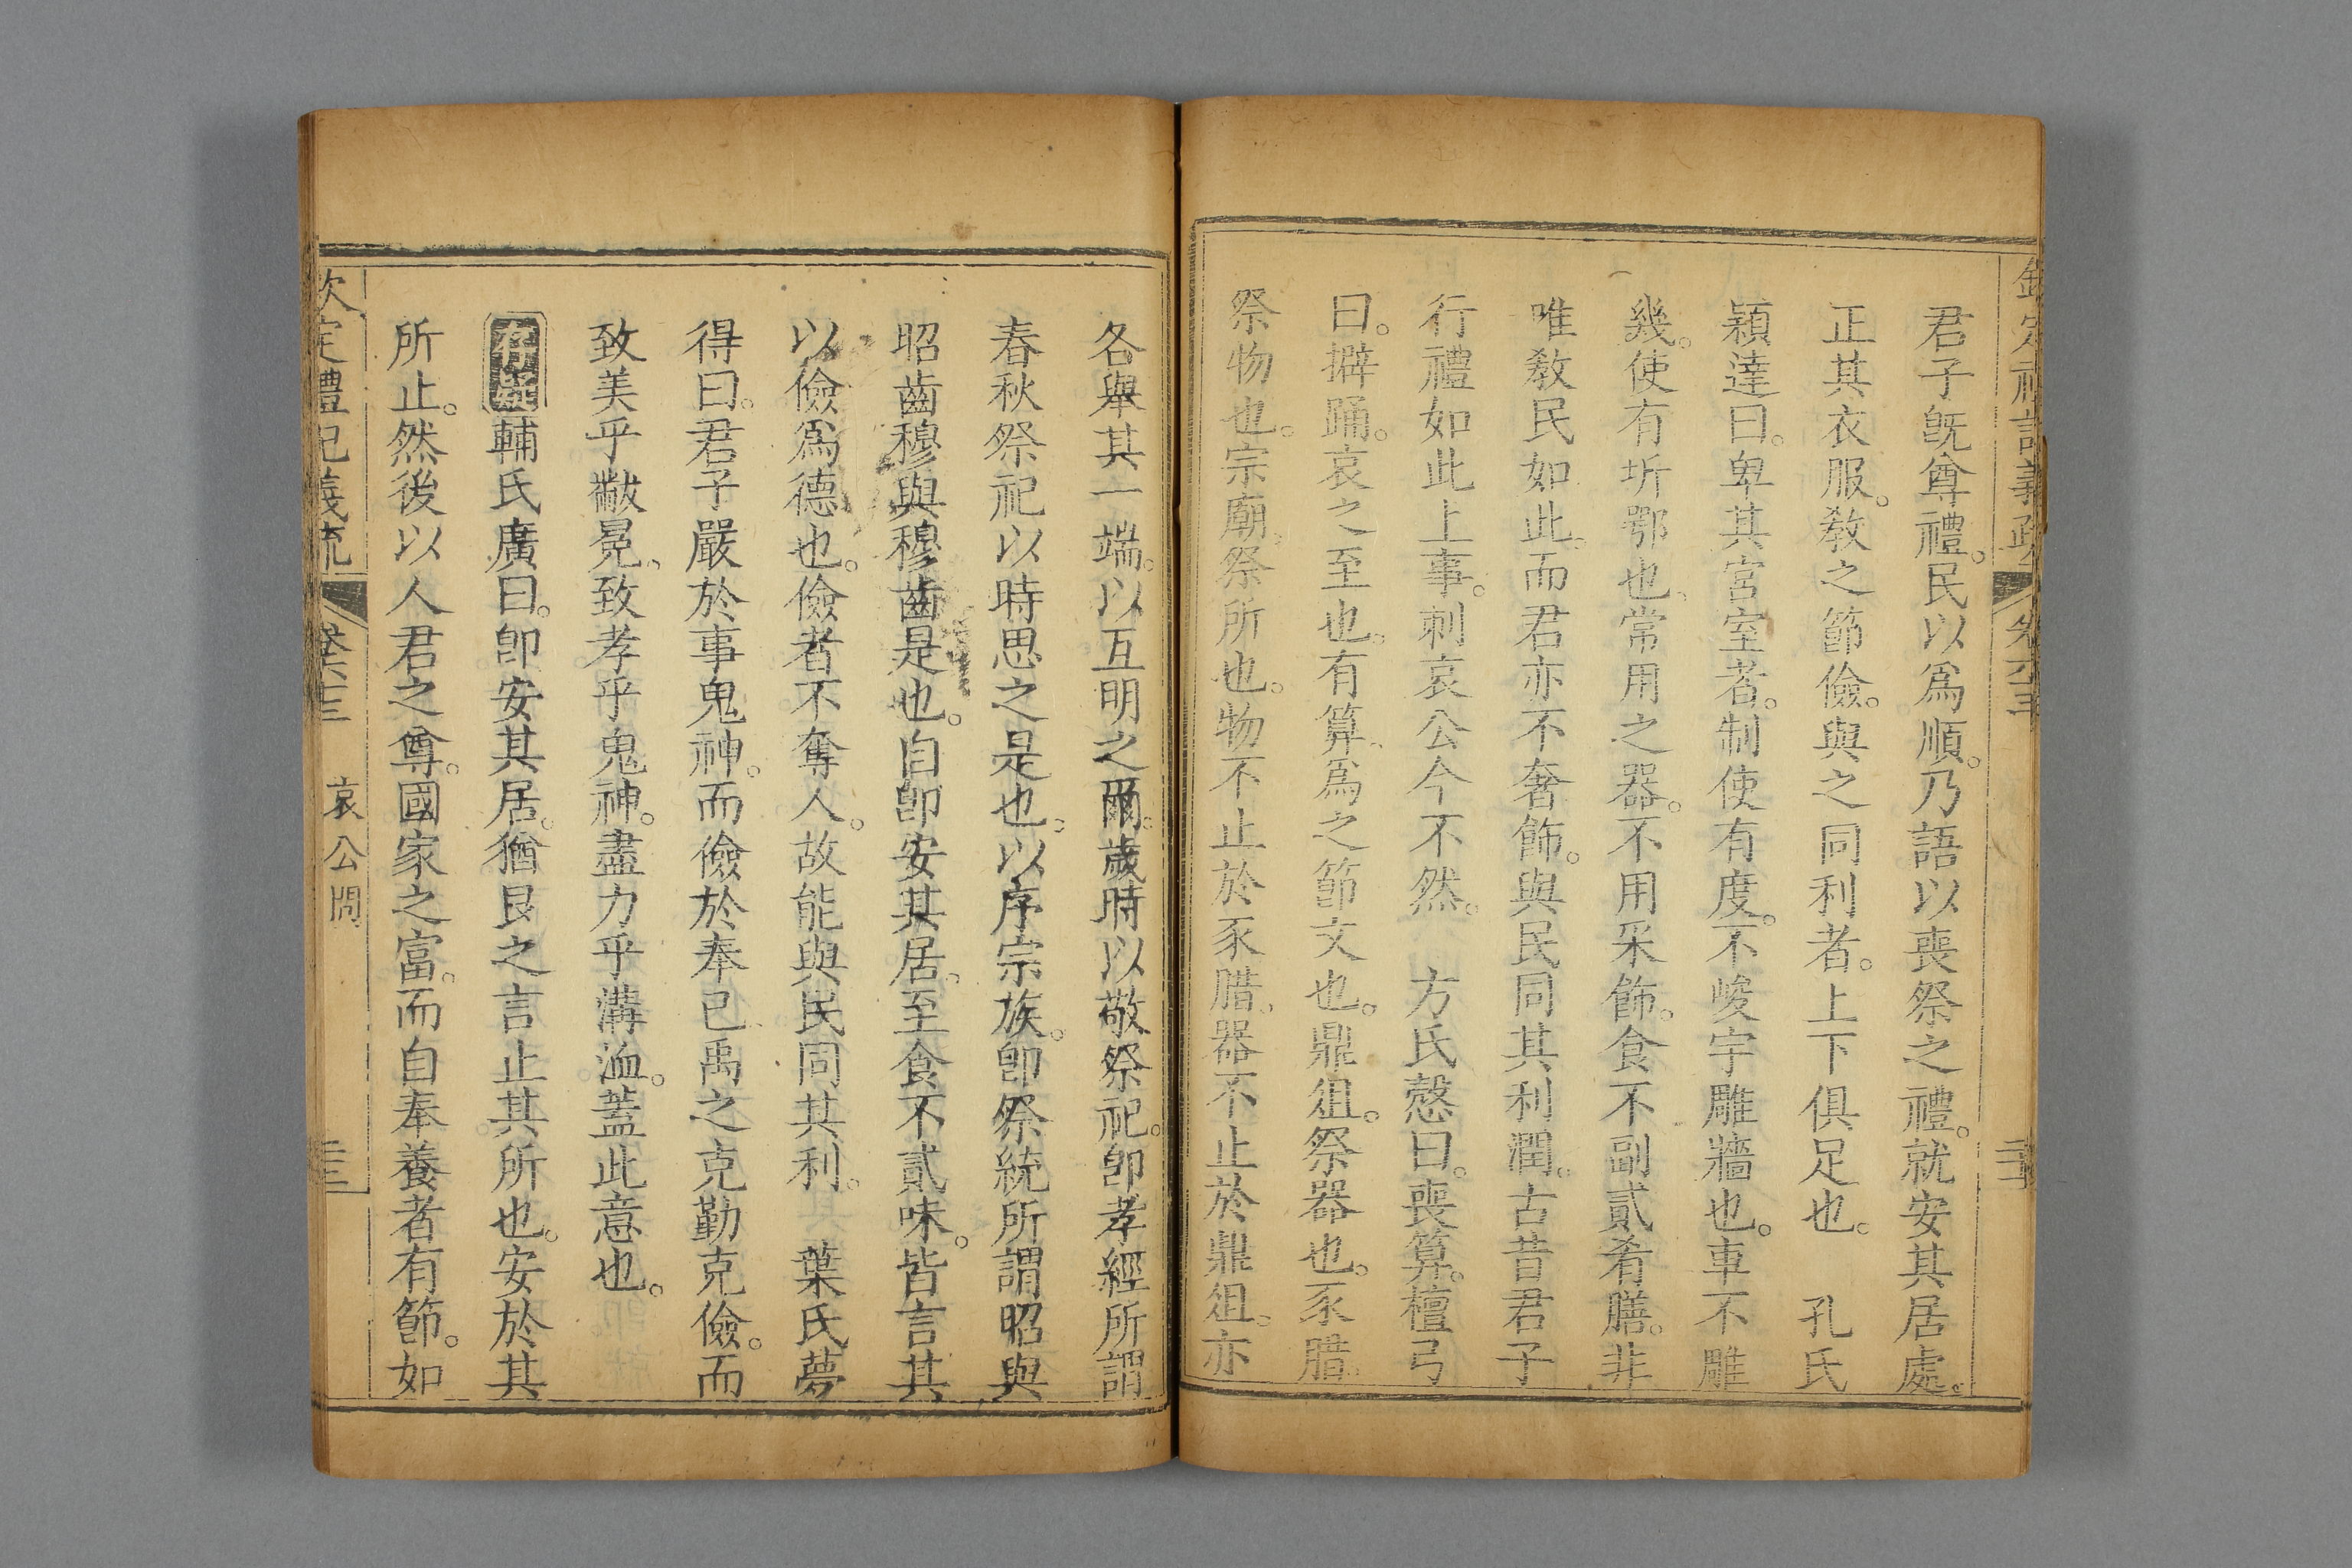 欽定禮記義疏 卷六十三
君子旣尊禮。民以爲順。乃語以喪祭之禮。就安其居處。
正其衣服。敎之節儉。與之同利者。上下俱足也。 孔氏
穎達曰。卑其宮室者。制使有度。不峻宇雕牆也。車不雕
幾。使有圻鄂也。常用之器。不用采飾。食不副貳肴膳。非
唯敎民如此。而君亦不奢飾。與民同其利潤。古昔君子
行禮如此上事。刺哀公今不然。 方氏慤曰。喪算。檀弓
曰。擗踊。哀之至也。有算。爲之節文也。鼎俎。祭器也。豕腊
祭物也。宗廟。祭所也。物不止於豕腊。器不止於鼎俎。亦
各舉其一端。以互明之爾。歲時以敬祭祀。卽孝經所謂
春秋祭祀以時思之是也。以序宗族。卽祭統所謂昭與
昭齒穆與穆齒是也。自卽安其居。至食不貳味。皆言其
以儉爲德也。儉者不奪人。故能與民同其利。 葉氏夢
得曰。君子嚴於事鬼神。而儉於奉已禹之克勤克儉。而
致美乎黻冕。致孝乎鬼神。盡力乎溝洫。蓋此意也。
存疑輔氏廣曰。卽安其居。猶艮之言止其所也。安於其
所止。然後以人君之尊。國家之富。而自奉養者有節。如
欽定禮記義疏 卷六十三 哀公問 二十三